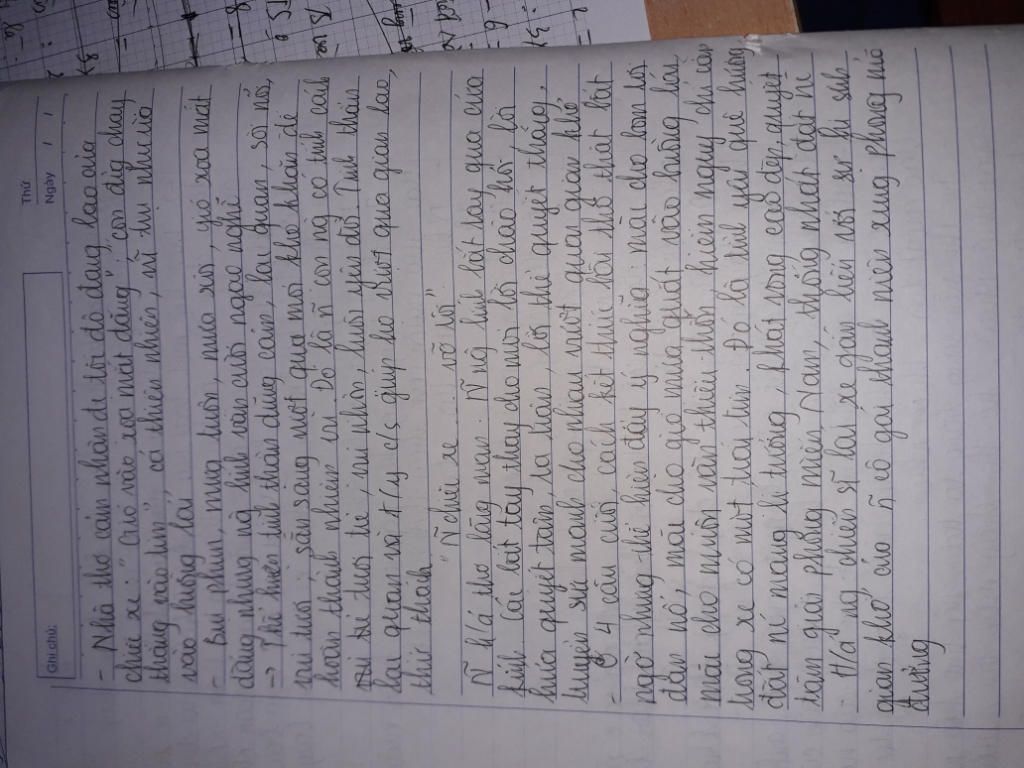 Thứ
Ngày / /
Ghi chú:
- Nhà thơ cảm nhận đc tốc độ đang lao của
chiếc xe: "Gió vào xoa mắt đắng", con đg chạy
thẳng vào tim", cả thiên nhiên, vũ trụ như ùa
vào buồng lái
- Bụi phun, mưa tuôn, mưa xối, gió xoa mắt
đắng nhưng ng lính vẫn cười ngạo nghễ
-> Thể hiện tinh thần dũng cảm, lạc quan, sôi nổi,
vui tươi, sẵn sàng vượt qua mọi khó khăn để
hoàn thành nhiệm vụ. Đó là ~ con ng có tính cách
trẻ tươi trẻ, vui nhộn, luôn yêu đời. Tinh thần
lạc quan và t/y c/s giúp họ vượt qua gian lao,
thử thách
"~ chiếc xe ... vỡ rồi"
~ k/á thơ lãng mạn. ~ ng lính bắt tay qua cửa
kính. Cái bắt tay thay cho mọi lời chào hỏi, lời
hứa quyết tâm ra trận, lời thề quyết thắng,
truyền sức mạnh cho nhau vượt quan quan khó
- 4 câu cuối cách kết thúc lời thơ thật bất
ngờ nhưng thể hiện đầy ý nghĩa: mặc cho bom rơi
đạn nổ, mặc cho gió mưa quất vào buồng lái,
mặc cho muôn vàn thiếu thốn hiểm nguy chỉ cần
trong xe có một trái tim. Đó là tình yêu quê hương
đất nc mang lí tưởng, khát vọng cao đẹp, quyệt
tâm giải phóng miền Nam, thống nhất đất nc
- H/a ng chiến sĩ lái xe gắn liền với sự hi sinh
gian khổ của ~ cô gái thanh niên xung phong mở
đường